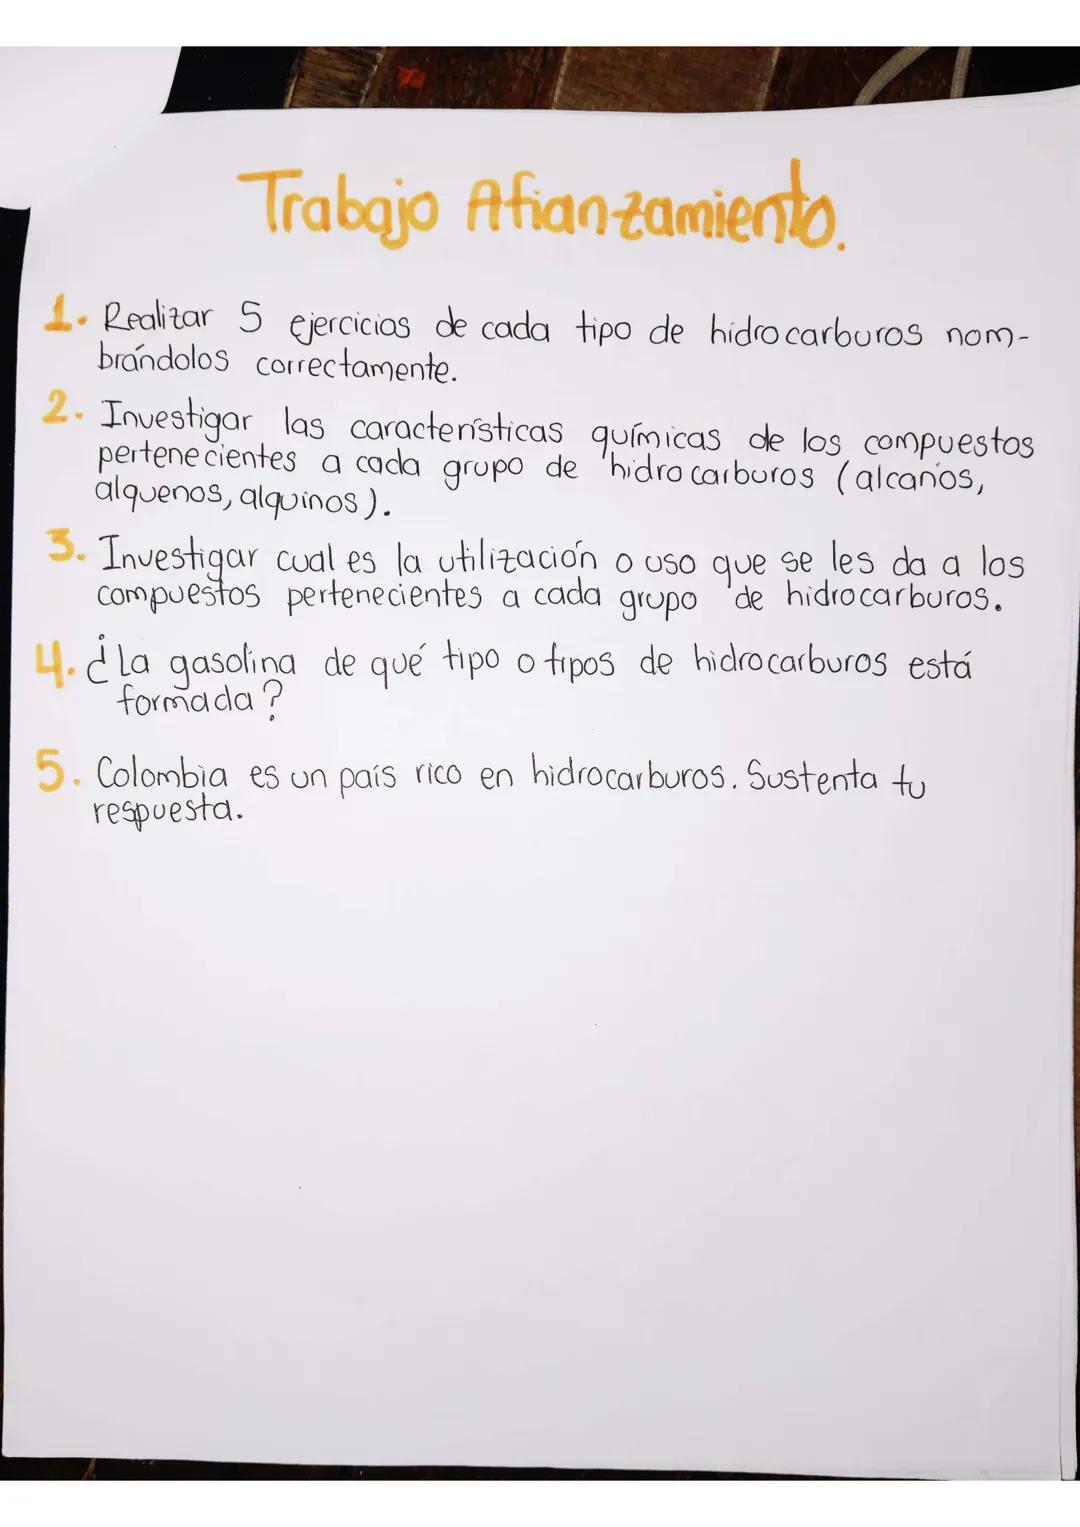 Trabajo Afianzamiento.
1. Realizar 5 ejercicios de cada tipo de hidrocarburos nom-
brándolos correctamente.
2. Investigar las características químicas de los compuestos
pertenecientes a cada grupo de hidrocarburos (alcanos,
alquenos, alquinos).
3. Investigar cual es la utilización o uso que se les da a los
compuestos pertenecientes a cada grupo de hidrocarburos.
4. ¿La gasolina de qué tipo o tipos de hidrocarburos está
formada?
5. Colombia es un país rico en hidrocarburos. Sustenta tu
respuesta.